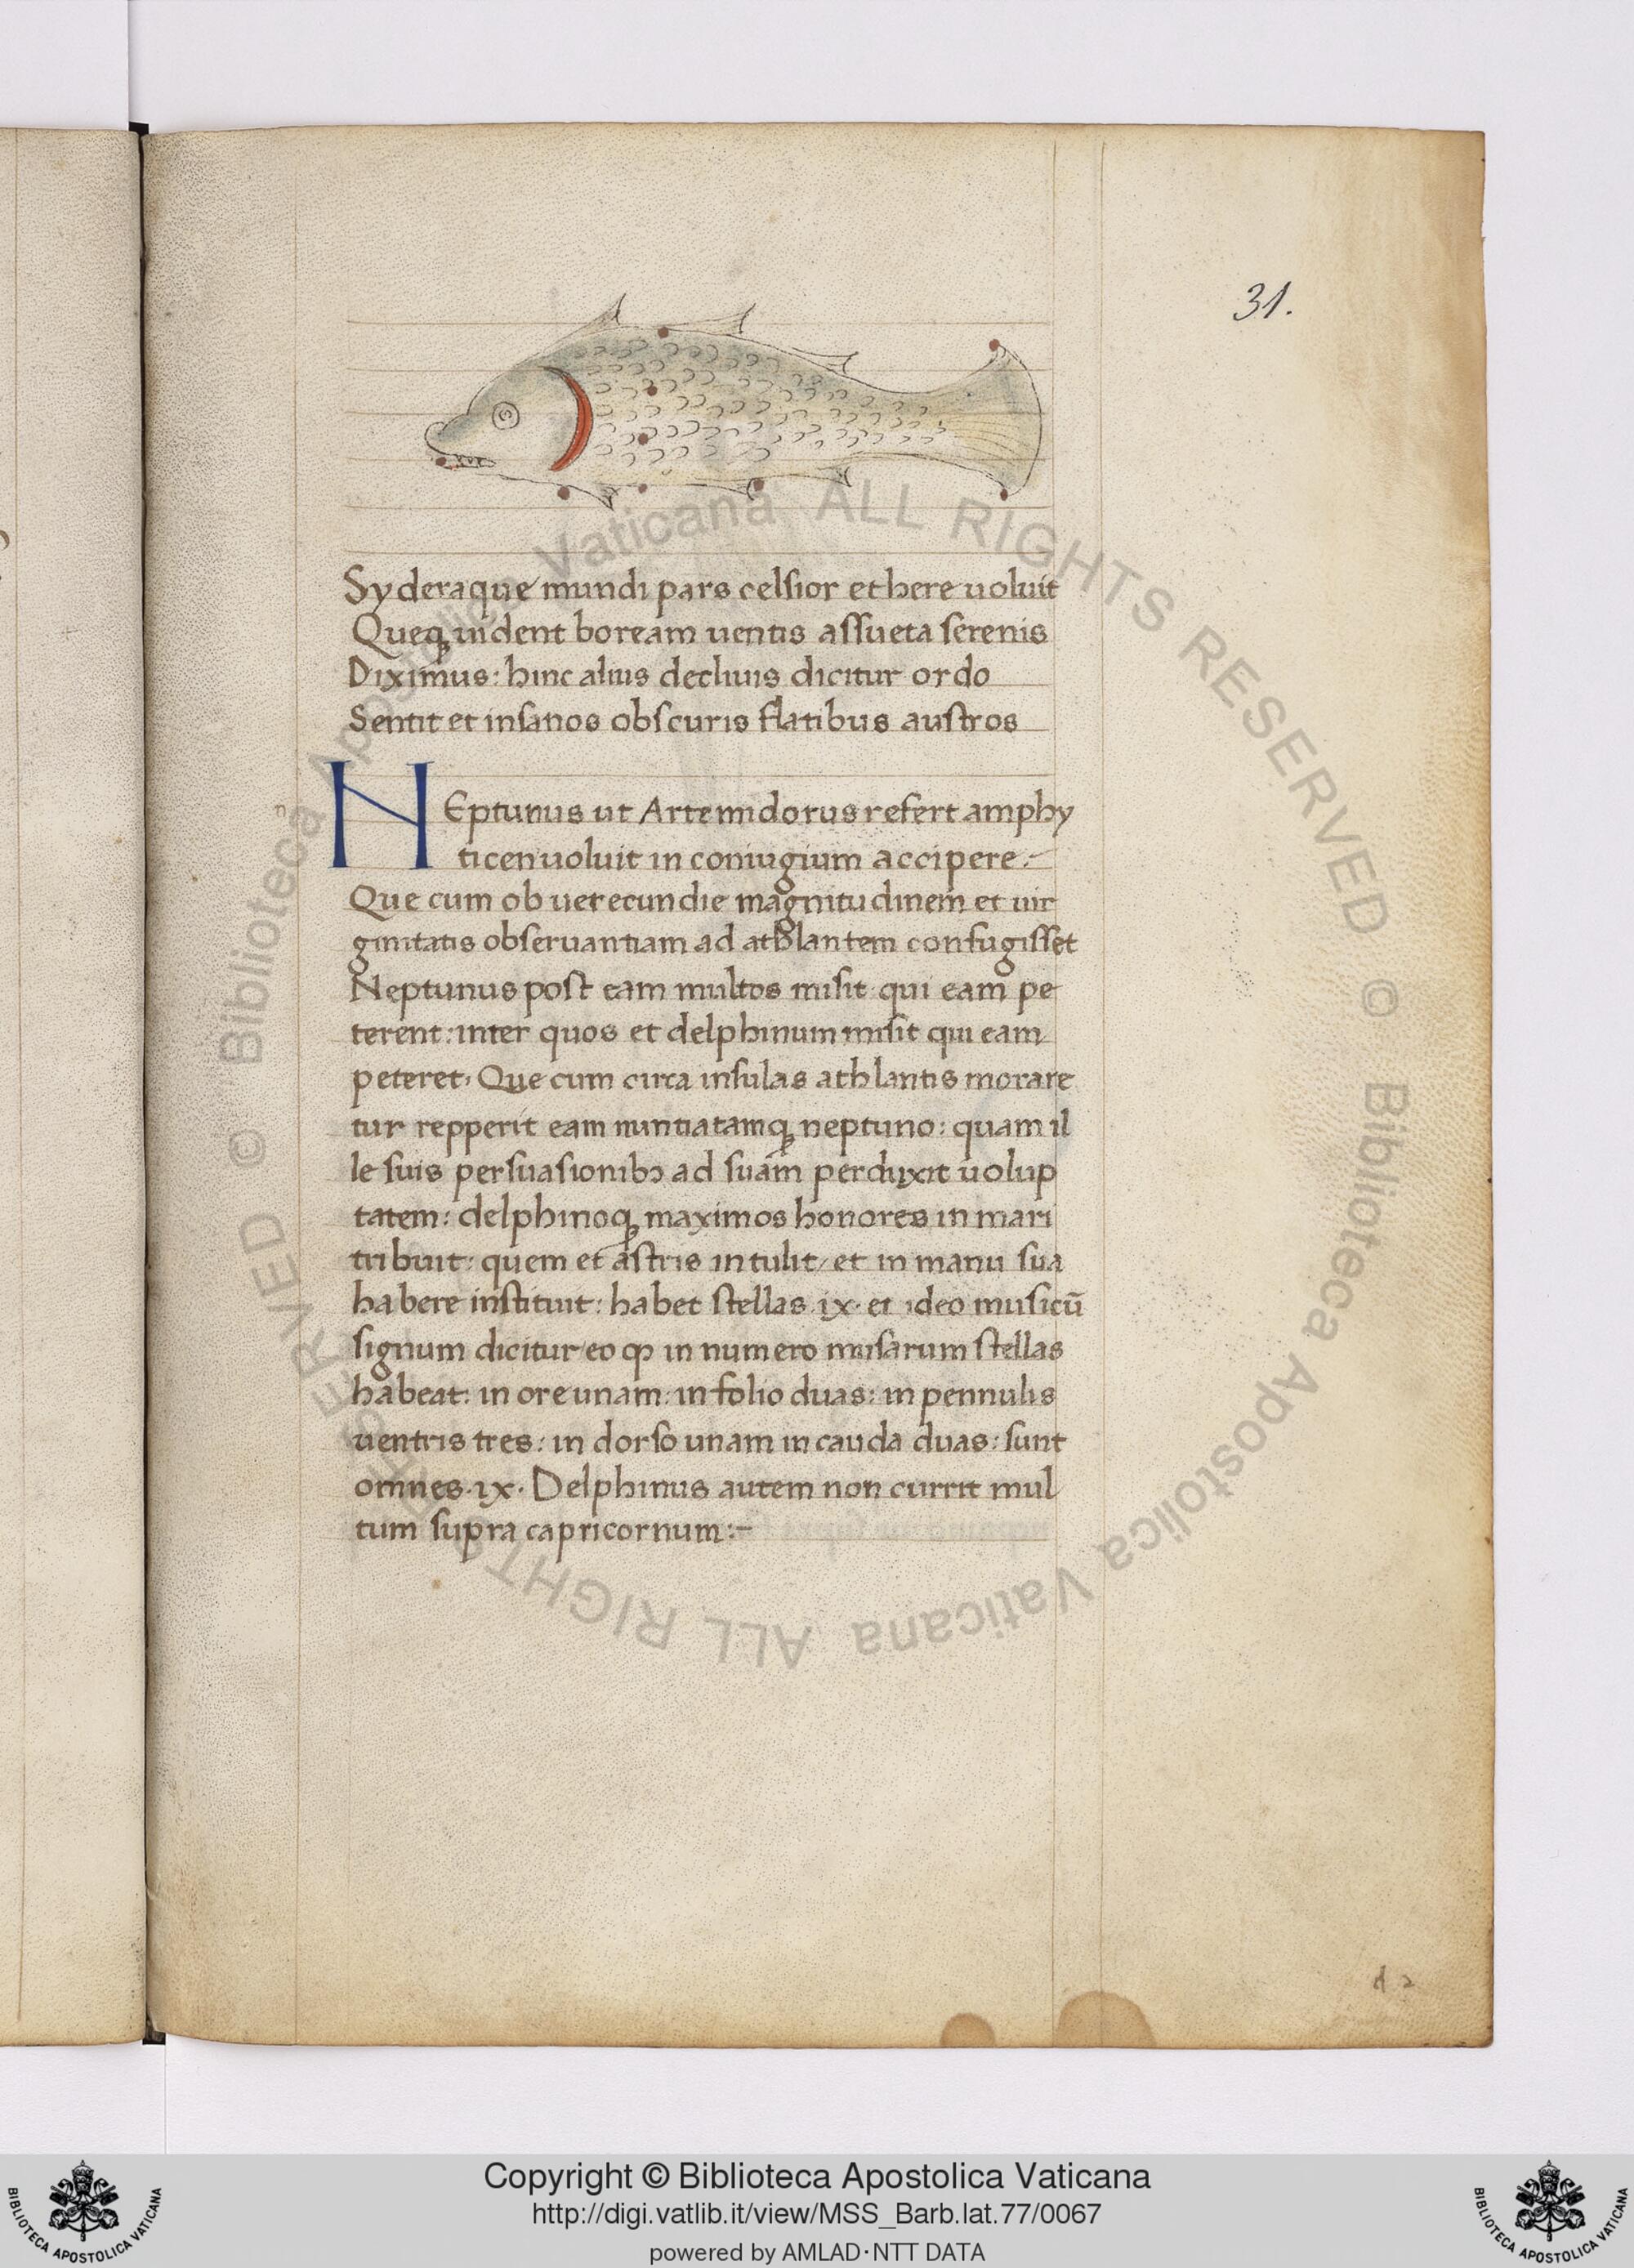 31.
Syderaque mundi pars celsior ethere uoluit
Queqꝫ uident boream uentis assueta serenis
Diximus: hinc alius decliuis dicitur ordo
Sentit et insanos obscuris flatibus austros
NEptunus ut Artemidorus refert amphy
ticen uoluit in coniugium accipere:-
Que cum ob uerecundie magnitudinem et uir
ginitatis obseruantiam ad athlantem confugisset
Neptunus post eam multos misit qui eam pe
terent: inter quos et delphinum misit qui eam
peteret. Que cum circa insulas athlantis morare
tur repperit eam nuntiatamqꝫ neptuno: quam il
le suis persuasionibꝰ ad suam perduxit uolup
tatem: delphinoqꝫ maximos honores in mari
tribuit: quem et astris intulit/ et in manu sua
habere instituit: habet stellas .ix. et ideo musicū
signum dicitur/ eo ꝙ in numero musarum stellas
habeat: in ore unam: in folio duas: in pennulis
uentris tres: in dorso unam in cauda duas: sunt
omnes .ix. Delphinus autem non currit mul
tum supra capricornum:-
d 2
© Biblioteca Apostolica Vaticana ALL RIGHTS RESERVED © Biblioteca Apostolica Vaticana ALL RIGHTS RESERVED
BIBLIOTECA APOSTOLICA VATICANA
Copyright © Biblioteca Apostolica Vaticana
http://digi.vatlib.it/view/MSS_Barb.lat.77/0067
powered by AMLAD·NTT DATA
BIBLIOTECA APOSTOLICA VATICANA